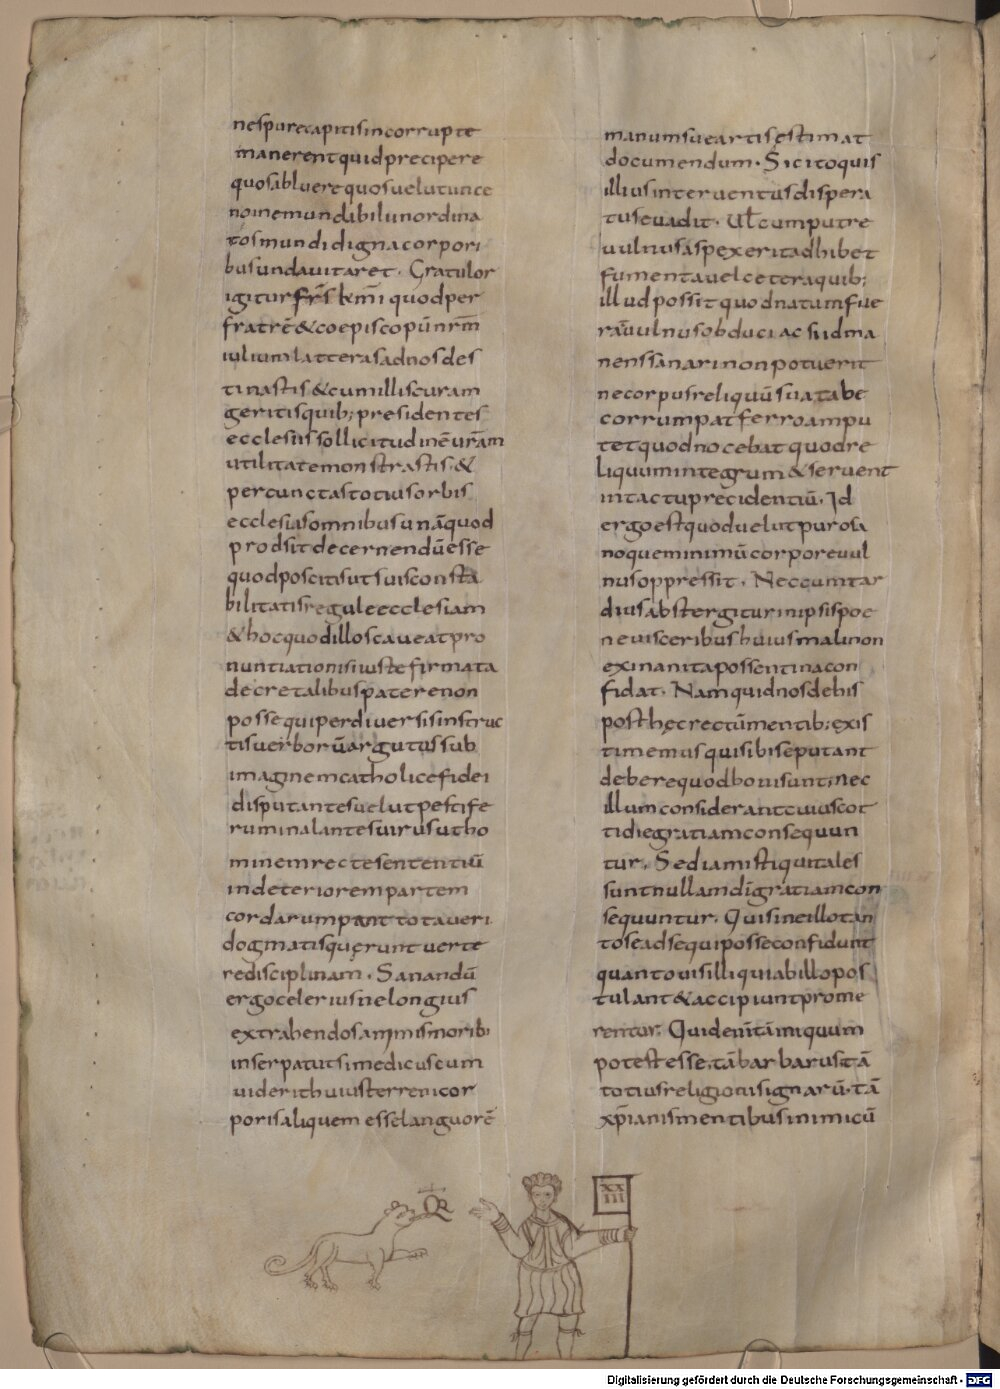 nespurecapitisincorrupte
manerentquidprecipere
quosabluerequosuelutunce
noinemundibilunordina
tosmundidignacorpori
busundauitaret. Gratulor
igiturfrs̄ kmī quodper
fratrē&coepiscopūnrm̄
iuliumlatterasadnosdes
tinastis&cumilliscuram
geritisquib;presidentes
ecclesiissollicitudinēurām
utilitatemonstrastis.&
percunctastotiusorbis
ecclesiasomnibusunāquod
prodsitdecernendūesse
quodposcitisutsuisconsta
bilitatisreguleecclesiam
&hocquodilloscaueatpro
nuntiationisiustefirmata
decretalibuspaterenon
possequiperdiuersisinstruc
tisuerborūargutussub
imaginemcatholicefidei
disputantesuelutpestife
ruminalantesuirusutho
minemrectesententiū
indeteriorempartem
cordarumpanttotaueri
dogmatisqueruntuerte
redisciplinam. Sanandū
ergoceleriusnelongius
extrahendosanimismorib;
inserpatutsimedicuscum
uiderithuiusterrenicor
porisaliquemesselanguorē
manumsueartisestimat
documendum. Sicitoquis
illiusinteruentusdisperi
tuseuadit. Ul̄cumputre
uulnusaspexeritadhibet
fumentauelceteraquib;
illudpossitquodnatumfue
rāuulnusobduciacsiidma
nenssanarinonpotuerit
necorpusreliquūsuatabe
corrumpatferroampu
tetquodnocebatquodre
liquumintegrum&seruent
intactuprecidentiū. Id
ergoestquoduelutpurosa
noqueminimūcorporeuul
nusoppressit. Neccumtar
diusabstergiturinipsispoe
neuisceribushuiusmalinon
exinanitapossentinacon
fidat. Namquidnosdehis
posthęcrectūmentib;exis
timemusquisibiseputant
deberequodbonisunt;nec
illumconsiderantcuiuscot
tidiegratiamconsequun
tur. Sediamistiquitales
suntnullamdīgratiamcon
sequuntur. Quisineillotan
toseadsequiposseconfidunt
quantouisilliquiabillopos
tulant&accipiuntprome
rentur. Quidenītāiniquum
potestesse,tābarbarus,tā
totiusreligionisignarū.tā
xp̄ianismentibusinimicū
QR
XX
III
Digitalisierung gefördert durch die Deutsche Forschungsgemeinschaft - DFG